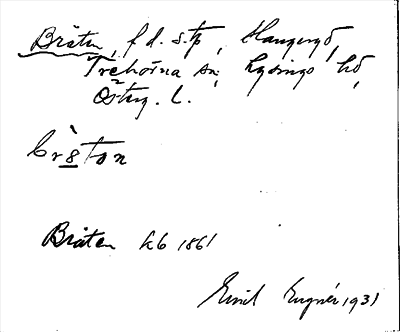 Bråten, f d. s.tp, Haugengd,
Trehörna sn, Lysings hd,
Österg. L.
Bråten kb 1861
Emil Eugnér 1931